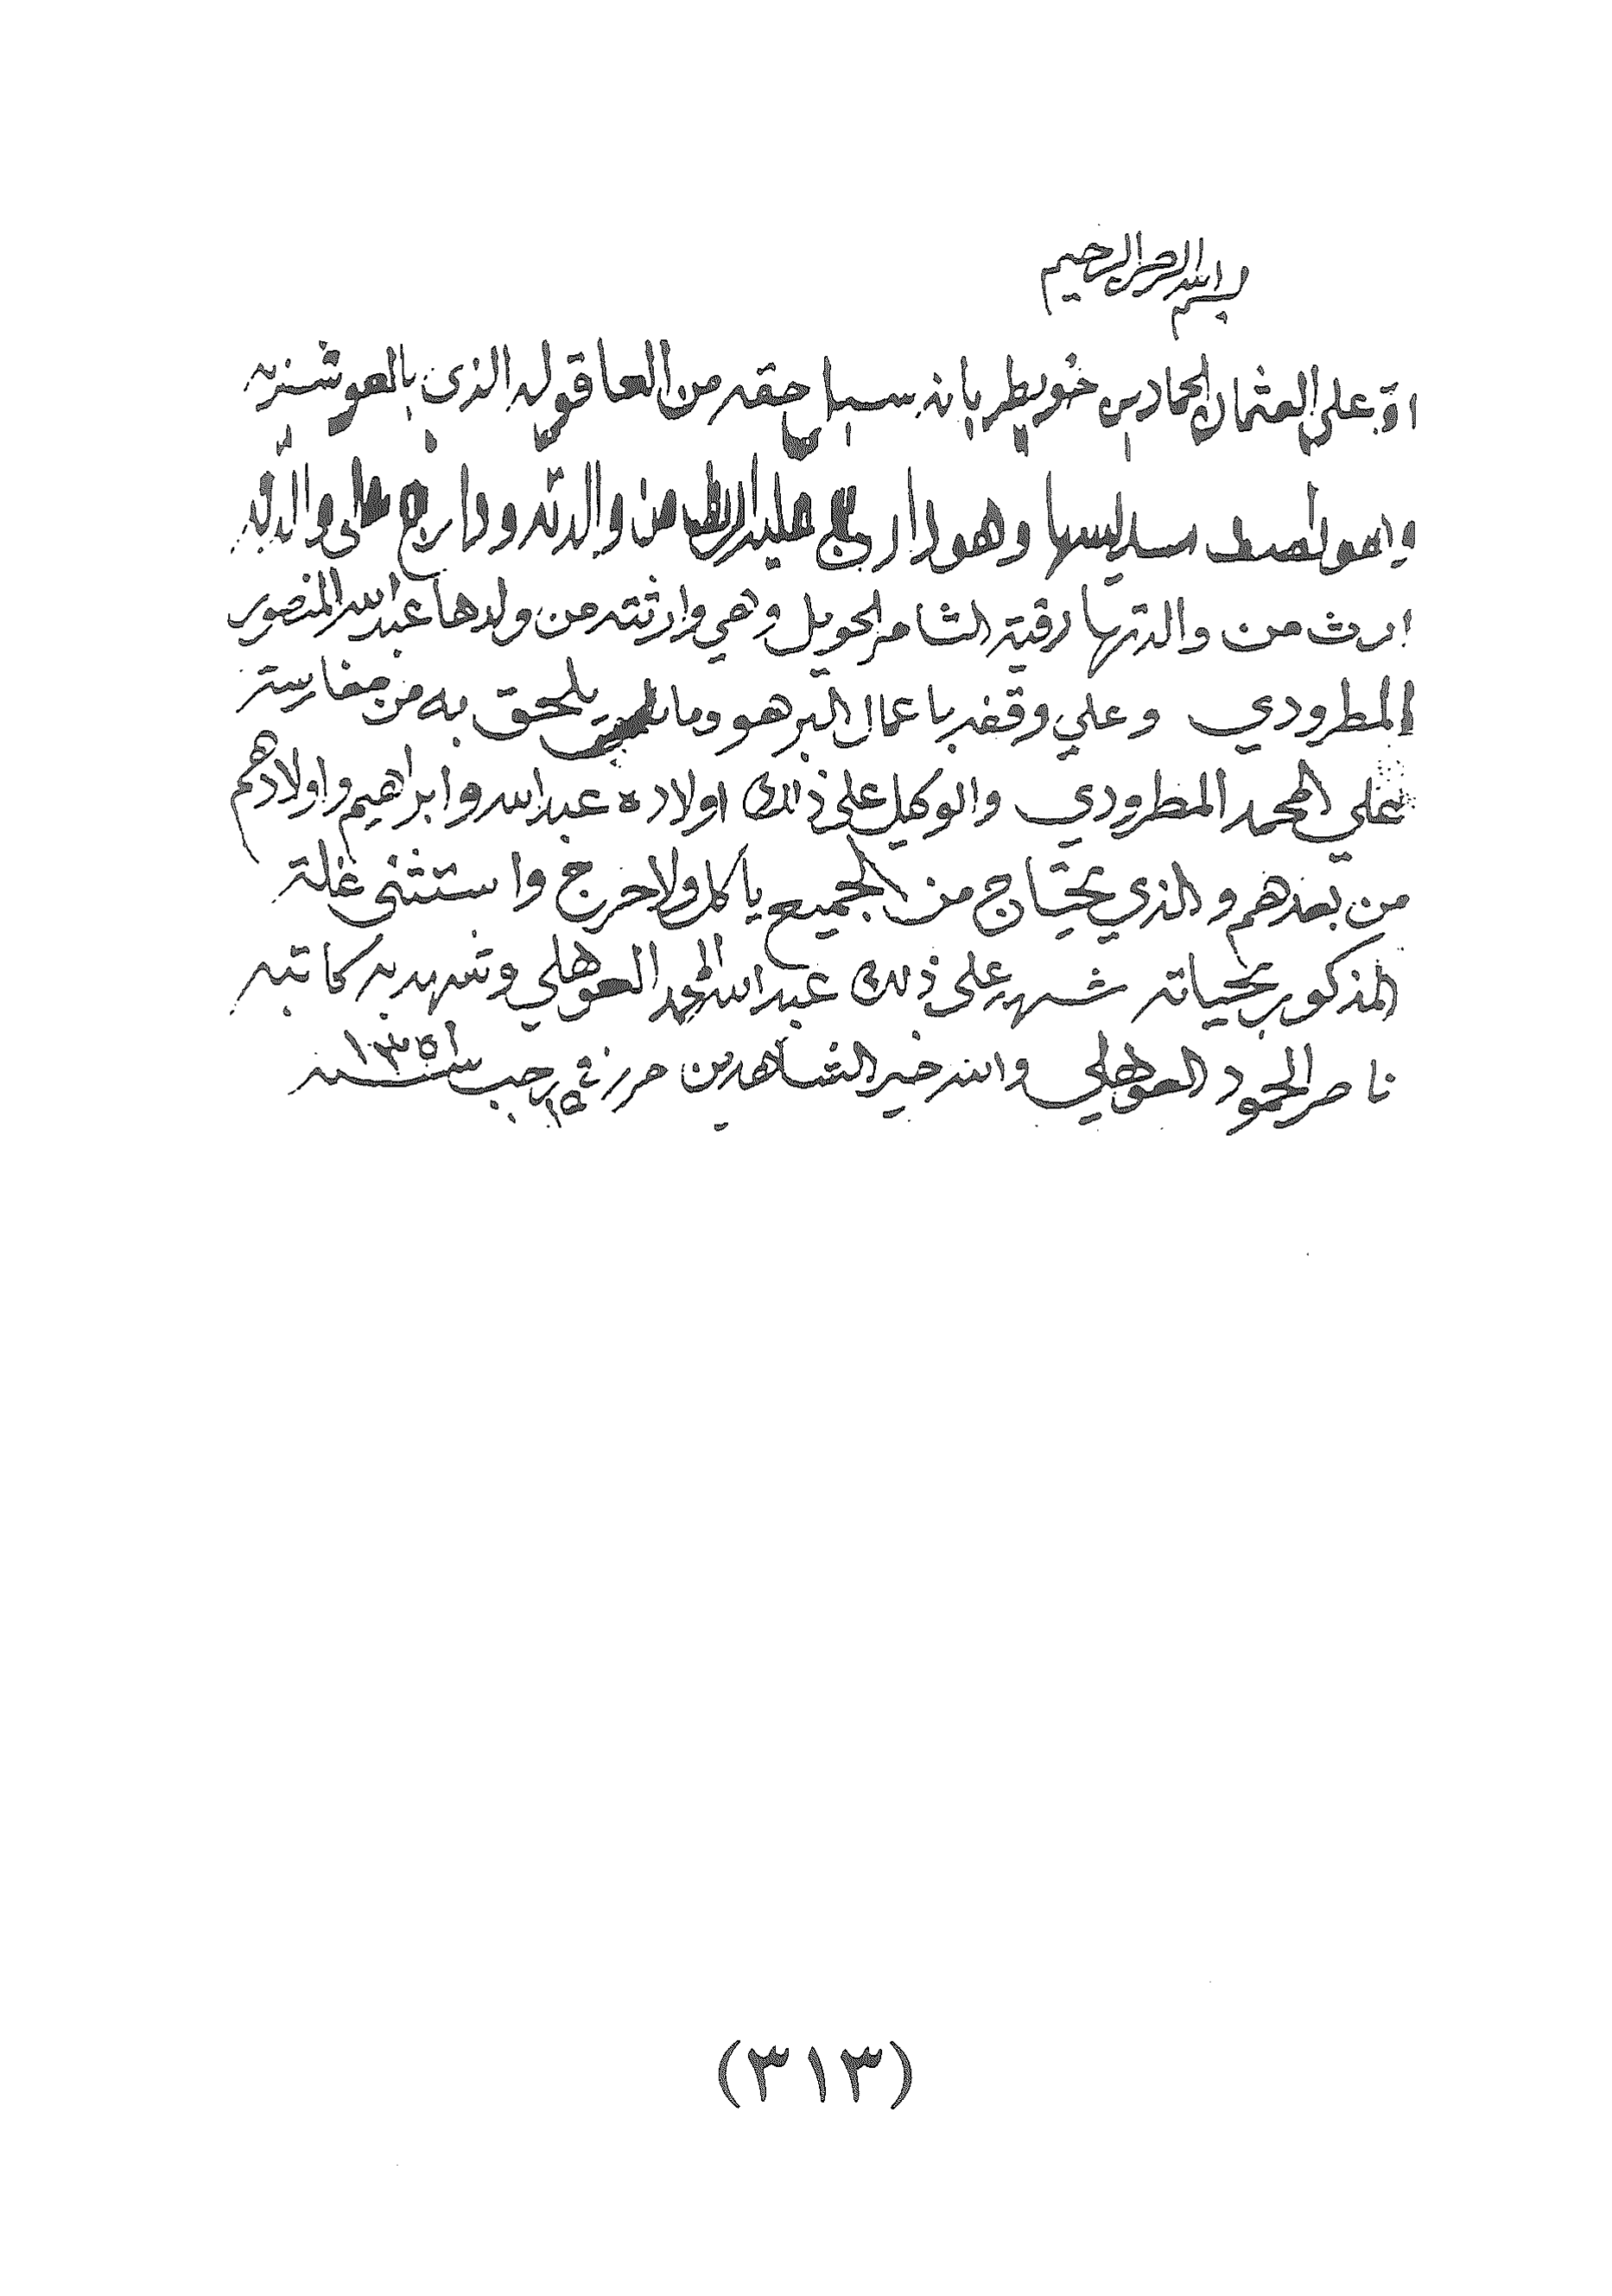 بسم الله الرحمن الرحيم
اقر علي العثمان الحمادبن خويطر بانه سبل حقه من العاقوله الذي بالعوشزيه
وهو نصف سديسها وهو من والدته على والدته
ارث من والدتها رقية الشامر الحويل وهي وارثته من ولدها عبدالله المنصور
المطرودي وعلي وقفه باعمال البر هو وما يلحق به من مغارسته
علي المحمد المطرودي والوكيل على ذلك اولاده عبدالله وابراهيم واولادهم
من بعدهم والذي يحتاج من الجميع ياكل ولا حرج واستثنى غلة
المذكور بحياته شهد على ذلك عبدالله المحمد العوهلي وشهد به كاتبه
ناصر الحمود العوهلي والله خير الشاهدين حرر في ١٥ رجب سنه ١٣٥١
(٣١٣)